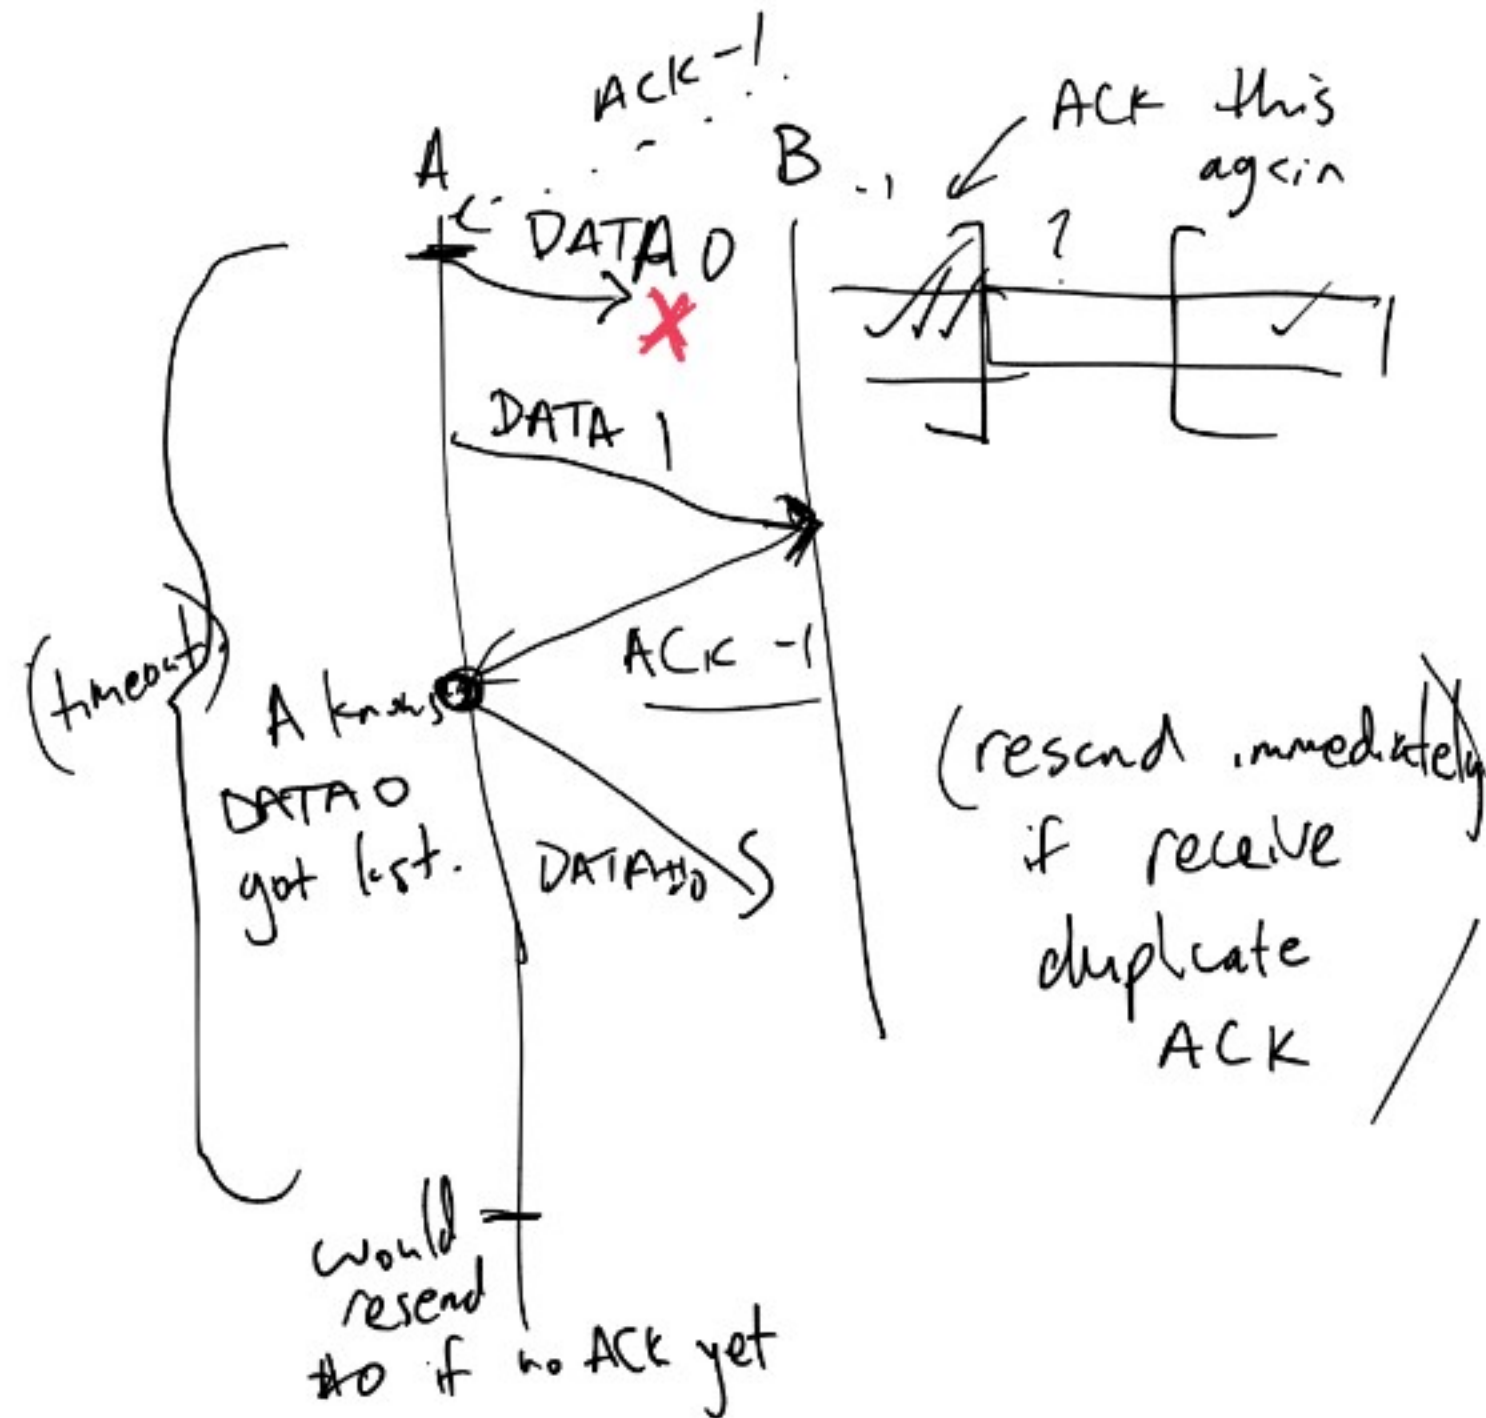 ACK -1
A
B
-1
ACK this
again
DATA 0
?
DATA 1
ACK -1
(timeout)
A knows
DATA 0
got lost.
DATA #0
(resend immediately)
if receive
duplicate
ACK
would
resend
#0 if no ACK yet